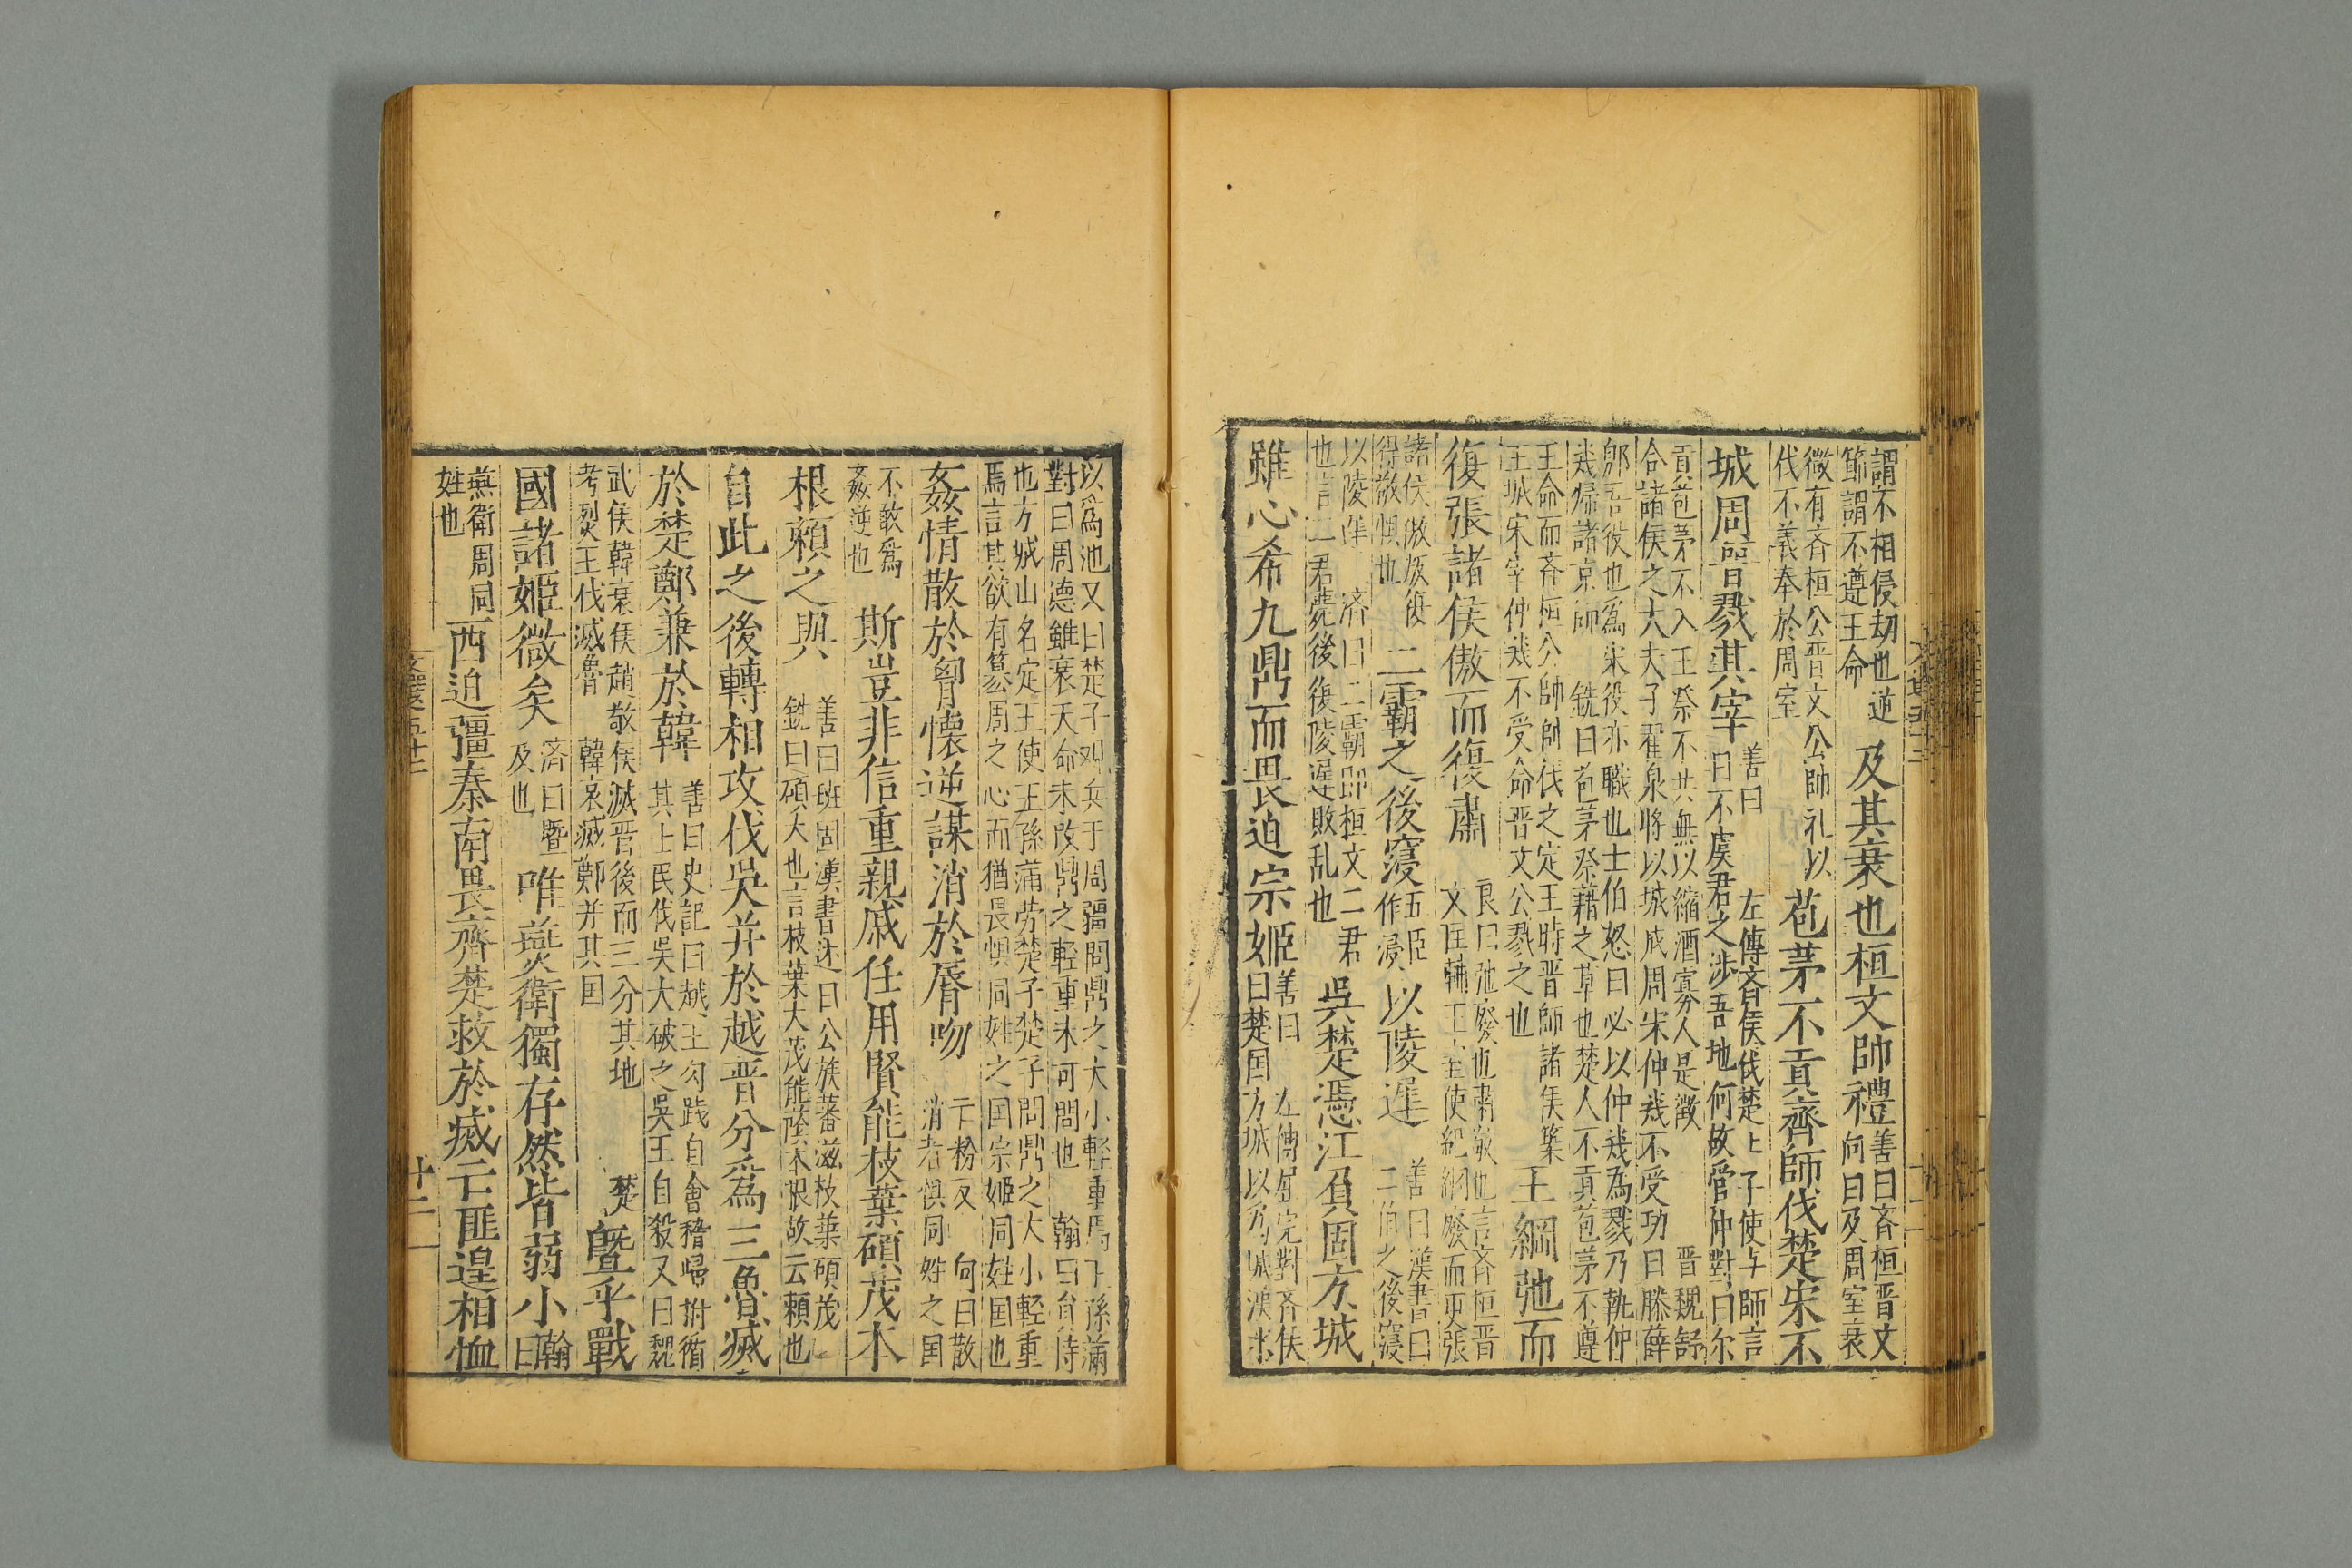 謂不相侵刼也逆節謂不遵王命及其衰也桓文帥禮善曰斉桓晋文向曰及周室衰
微有斉桓公晋文公帥礼以伐不義奉於周室苞茅不貢齊師伐楚宋不
城周晋戮其宰善曰左傳斉侯伐楚子使与師言曰不虞君之渉吾地何故管仲對曰尔
貢苞茅不入王祭不共無以縮酒寡人是徵晋魏舒合諸侯之大夫于翟泉將以城成周宋仲幾不受功曰滕薛
郳吾役也為宋役亦職也士伯怒曰必以仲幾為戮乃執仲幾歸諸京師銑曰苞茅祭藉之草也楚人不貢苞茅不遵
王命而斉桓公帥師伐之定王時晋師諸侯築王城宋宰仲幾不受命晋文公戮之也王綱弛而
復張諸侯傲而復肅良曰弛廢也肅敬也言斉桓晋文匡輔王室使紀綱廢而更張
諸侯傲族復得敬惧也二霸之後寖五臣作浸以陵遲善曰漢書曰二伯之後寖
以陵遅済曰二霸即桓文二君也言二君薨後復陵遅敗乱也吳楚憑江負固方城
雖心希九鼎而畏迫宗姬善曰左傳屈完對斉侯曰楚国方城以為城漢水
以為池又曰楚子观兵于周疆問鼎之大小輕重焉王孫滿對曰周德雖衰天命未改鼎之輕重未可問也翰曰負恃
也方城山名定王使王孫滿労楚子楚子問鼎之大小輕重焉言其欲有簒周之心而猶畏惧同姓之国宗姬同姓国也
姦情散於胷懷逆謀消於脣吻亡粉反向曰散消者惧同姓之国
不敢爲姦逆也斯豈非信重親戚任用賢能枝葉碩茂本
根賴之與善曰班固漢書述曰公族蕃滋枝葉碩茂銑曰碩大也言枝葉大茂能蔭本根故云賴也
自此之後轉相攻伐吳并於越晉分爲三魯滅
於楚鄭兼於韓善曰史記曰越王勾践自會稽歸拊循其士民伐吳大破之吳王自殺又曰魏
武侯韓哀侯趙敬侯滅晋後而三分其地楚考烈王伐滅魯韓哀滅鄭并其国曁乎戰
國諸姬微矣済曰曁及也唯燕衛獨存然皆弱小翰曰
燕衛周同姓也西迫彊秦南畏齊楚救於滅亡匪遑相恤
文選五十二
廿二